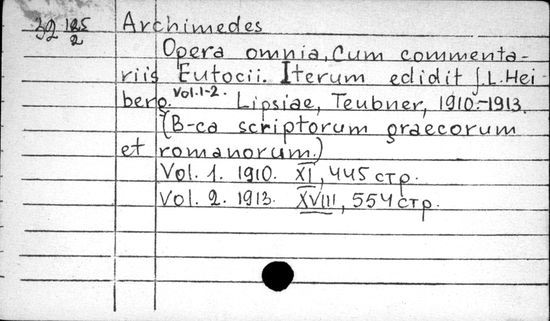 32 125/2 Archimedes
Opera omnia. Cum commenta-
riis Eutocii. Iterum edidit J.L. Hei
berg. Vol. 1-2. Lipsiae, Teubner, 1910-1913.
(B-ca scriptorum graecorum
et romanorum.)
Vol. 1. 1910. XI, 445 стр.
Vol. 2. 1913. XVIII, 554 стр.